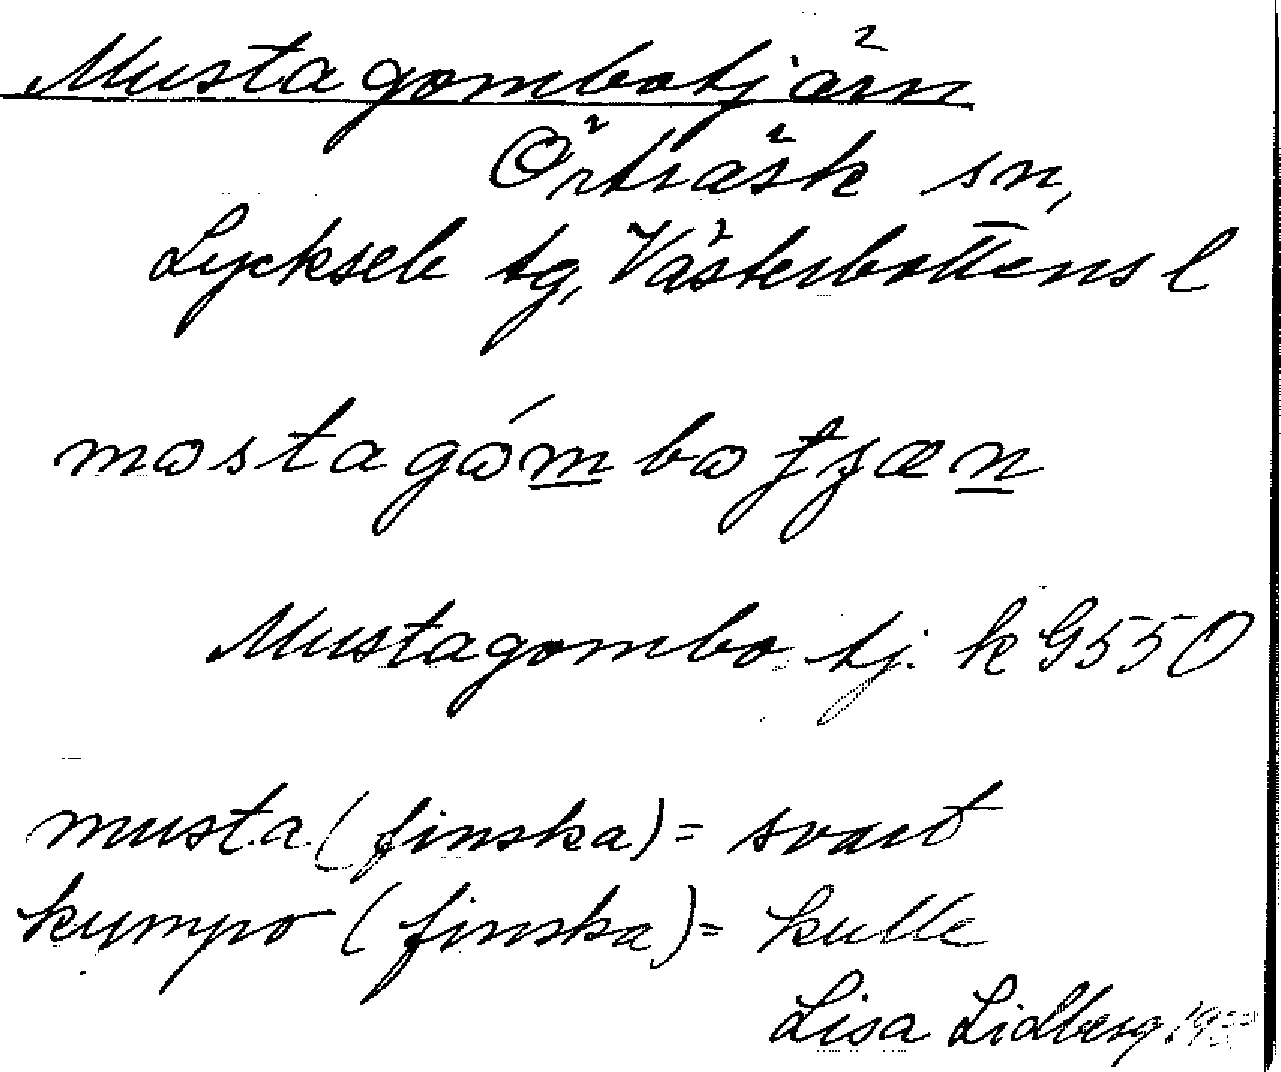 Mustagombotjärn
Örträsk sn,
Lycksele tg, Västerbottens l
mostagómbotjæn
Mustagombo tj. k G550
musta (finska) = svart
kympo (finska) = kulle
Lisa Lidberg